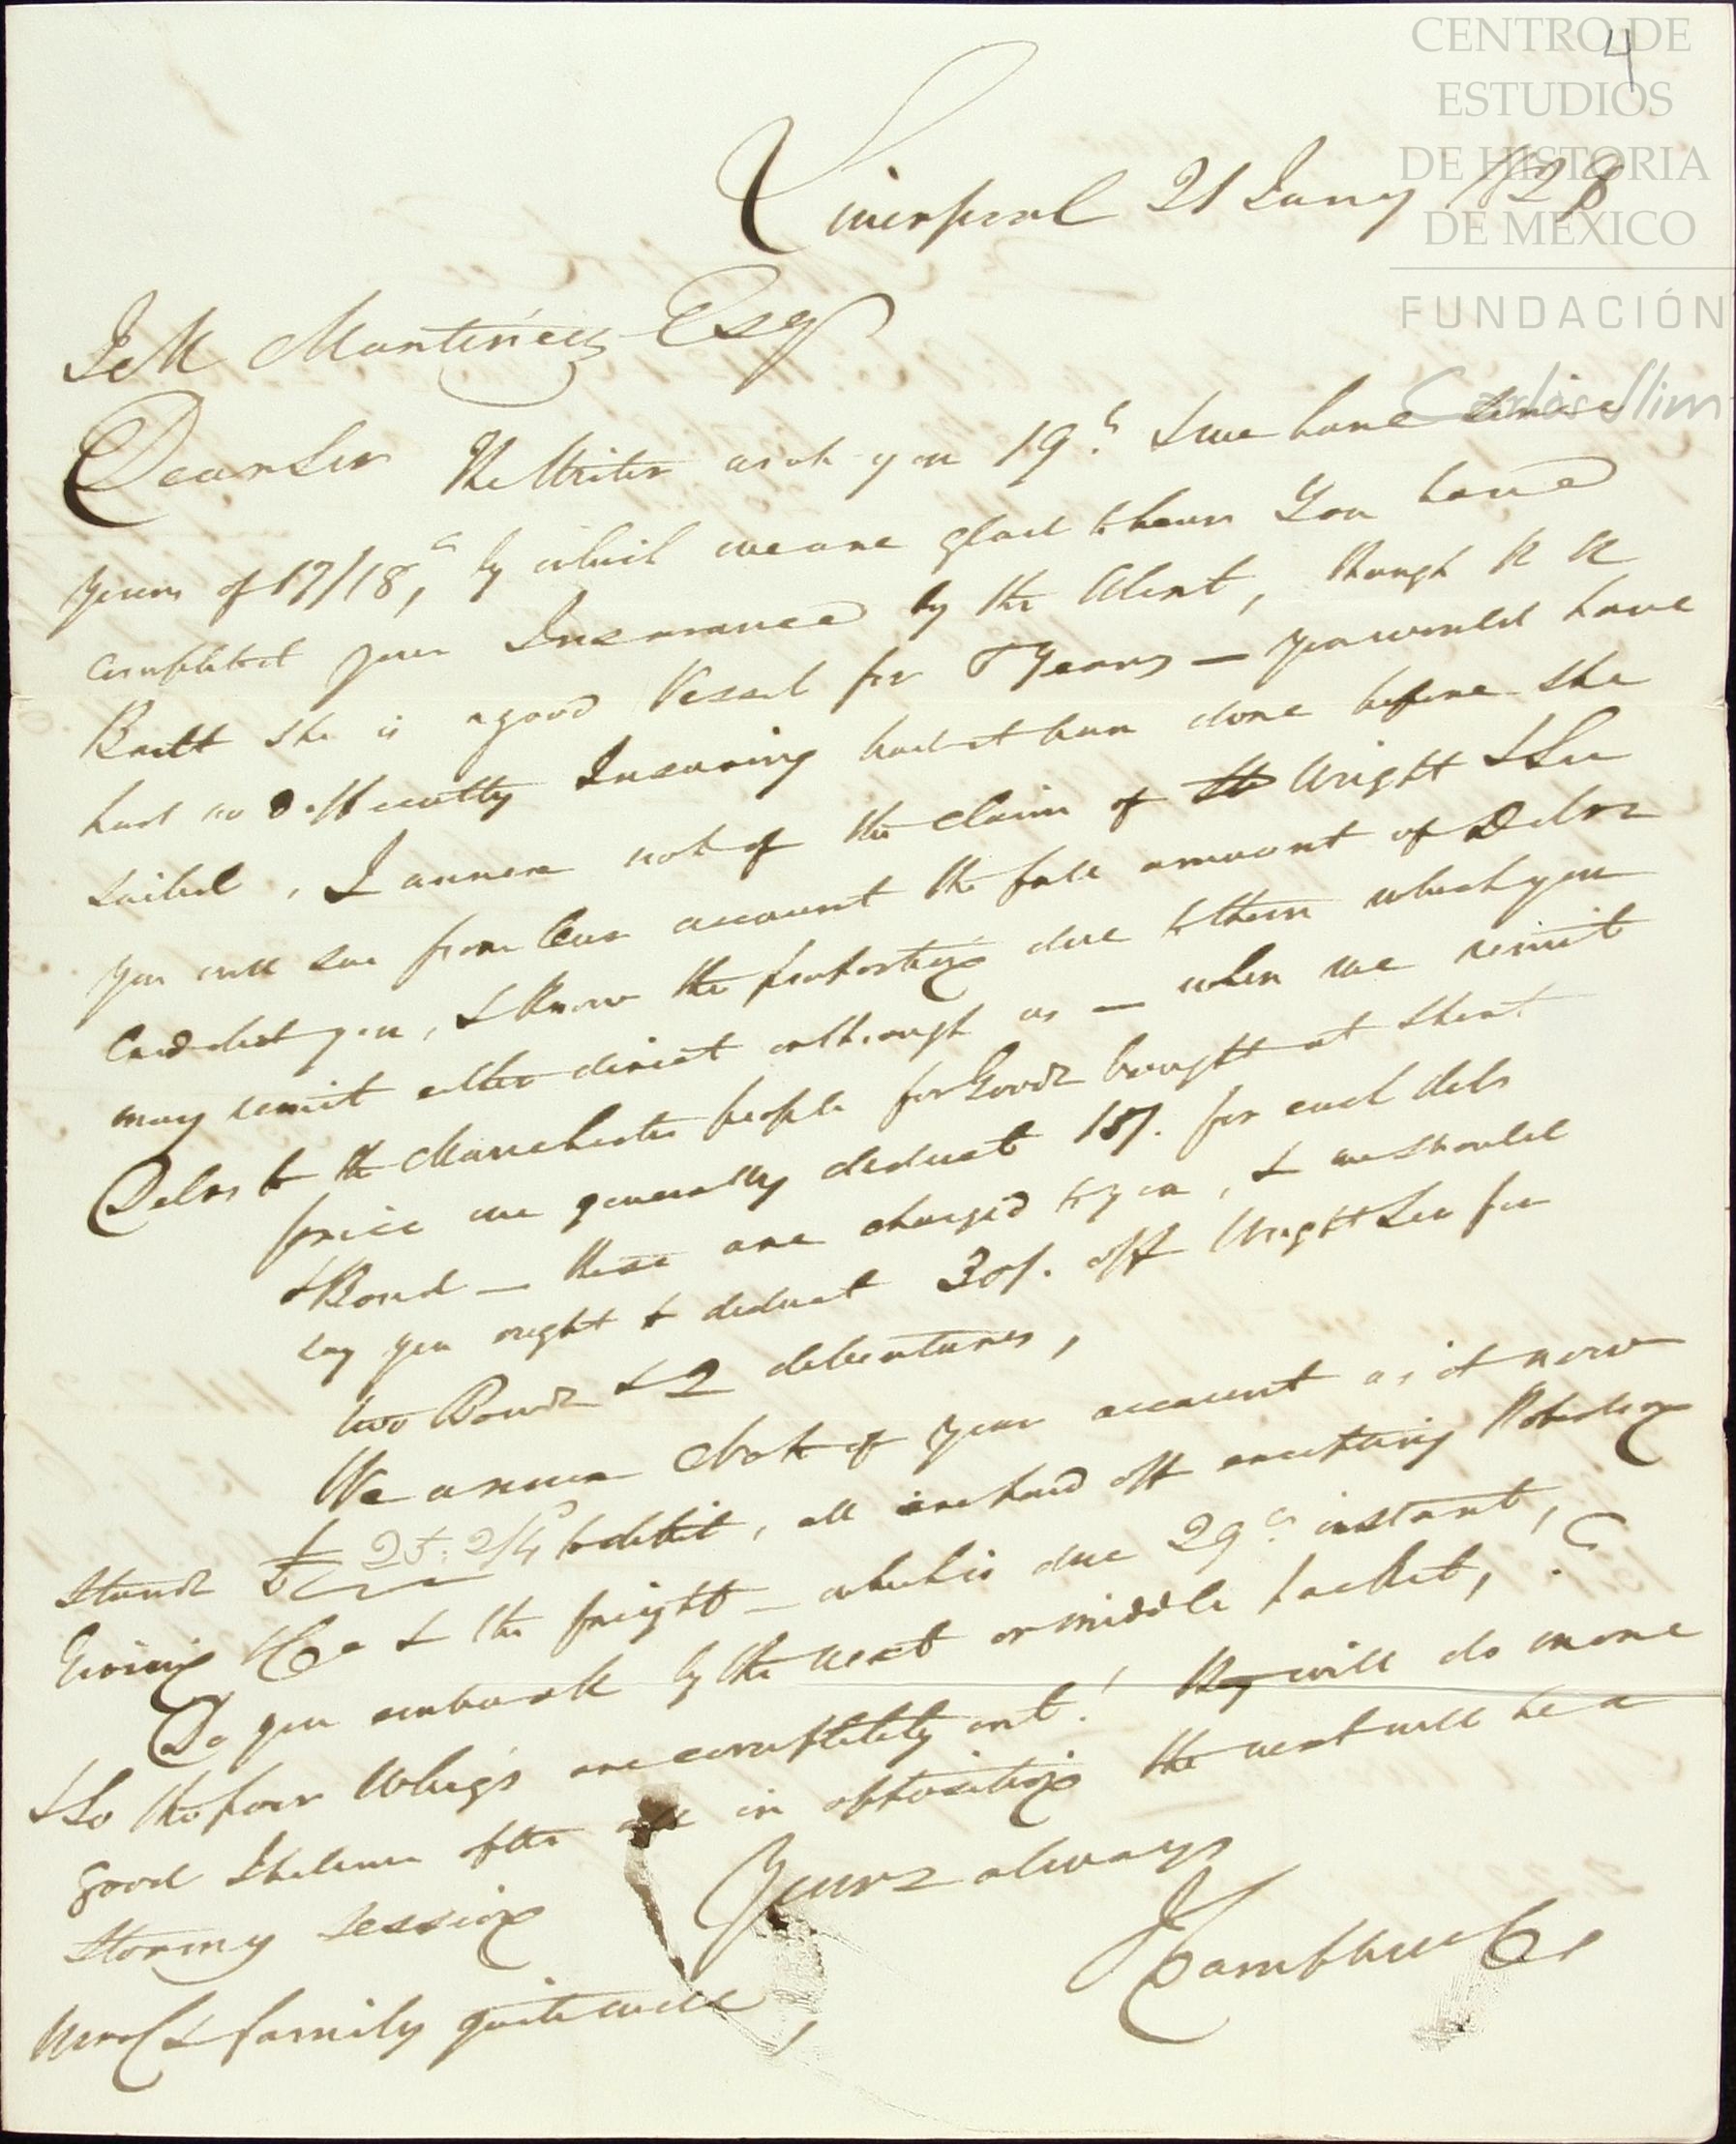 CENTRO DE
ESTUDIOS
DE HISTORIA
DE MÉXICO
FUNDACIÓN
Carlos Slim
4
Liverpool 21 Jany 1828
J M Martinez Esq
Dear Sir The Writer wrote you 19th & we have since
yours of 17/18th, by which we are glad to hear You have
completed your Insurance by the Alert, though N
Built she is a good Vessel for 5 Years — you would have
had no difficulty Insuring had it been done before she
sailed, I annex note of the claim of Wright & Lee
you will see from Our account the full amount of Debs
Cred debit you, & know the proportion due to them which you
may remit either direct or through us — when we remit
Debs to the Manchester people for Goods bought at short
price we generally deduct 15/. for each deb
& Bond — these are charged to you, & we should
say you ought to deduct 30/. off Wright Lee for
two Bonds & 2 debentures,
We annex Note of your account as it now
stands £ 25. 2/4 to debit, all is paid off excepting Robertson
& Co & the freight — which is due 29th instant,
Do you embark by the next or middle packet, ?
& So the poor Whigs are completely out! They will do more
good Itelieve after all in opposition the next will be a
stormy session Yours always
Mrs C & family quite well,